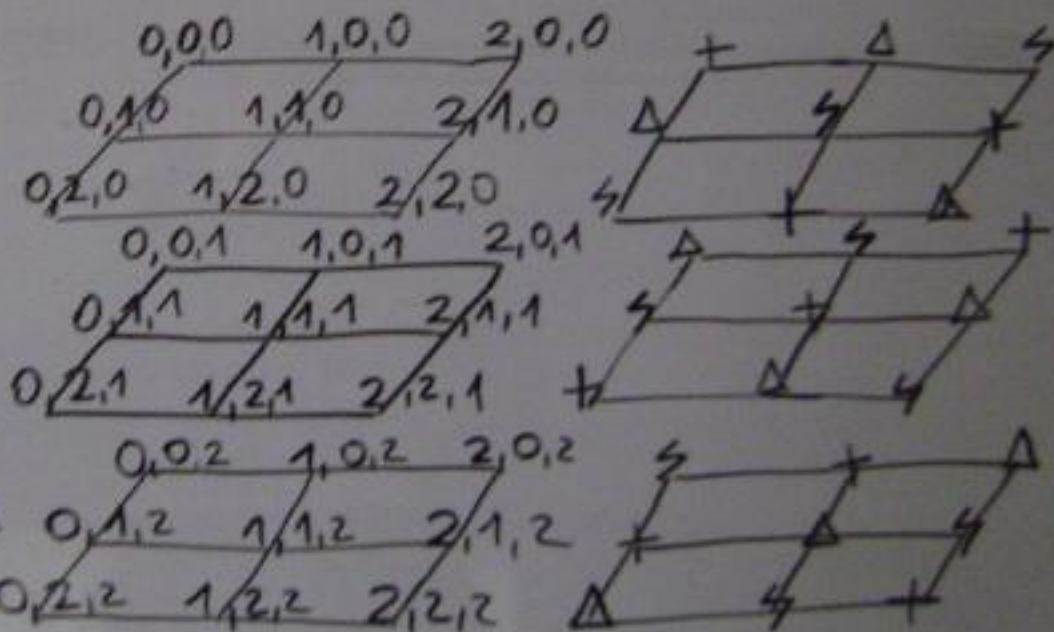 0,0,0 1,0,0 2,0,0
0,1,0 1,1,0 2,1,0
0,2,0 1,2,0 2,2,0
0,0,1 1,0,1 2,0,1
0,1,1 1,1,1 2,1,1
0,2,1 1,2,1 2,2,1
0,0,2 1,0,2 2,0,2
0,1,2 1,1,2 2,1,2
0,2,2 1,2,2 2,2,2